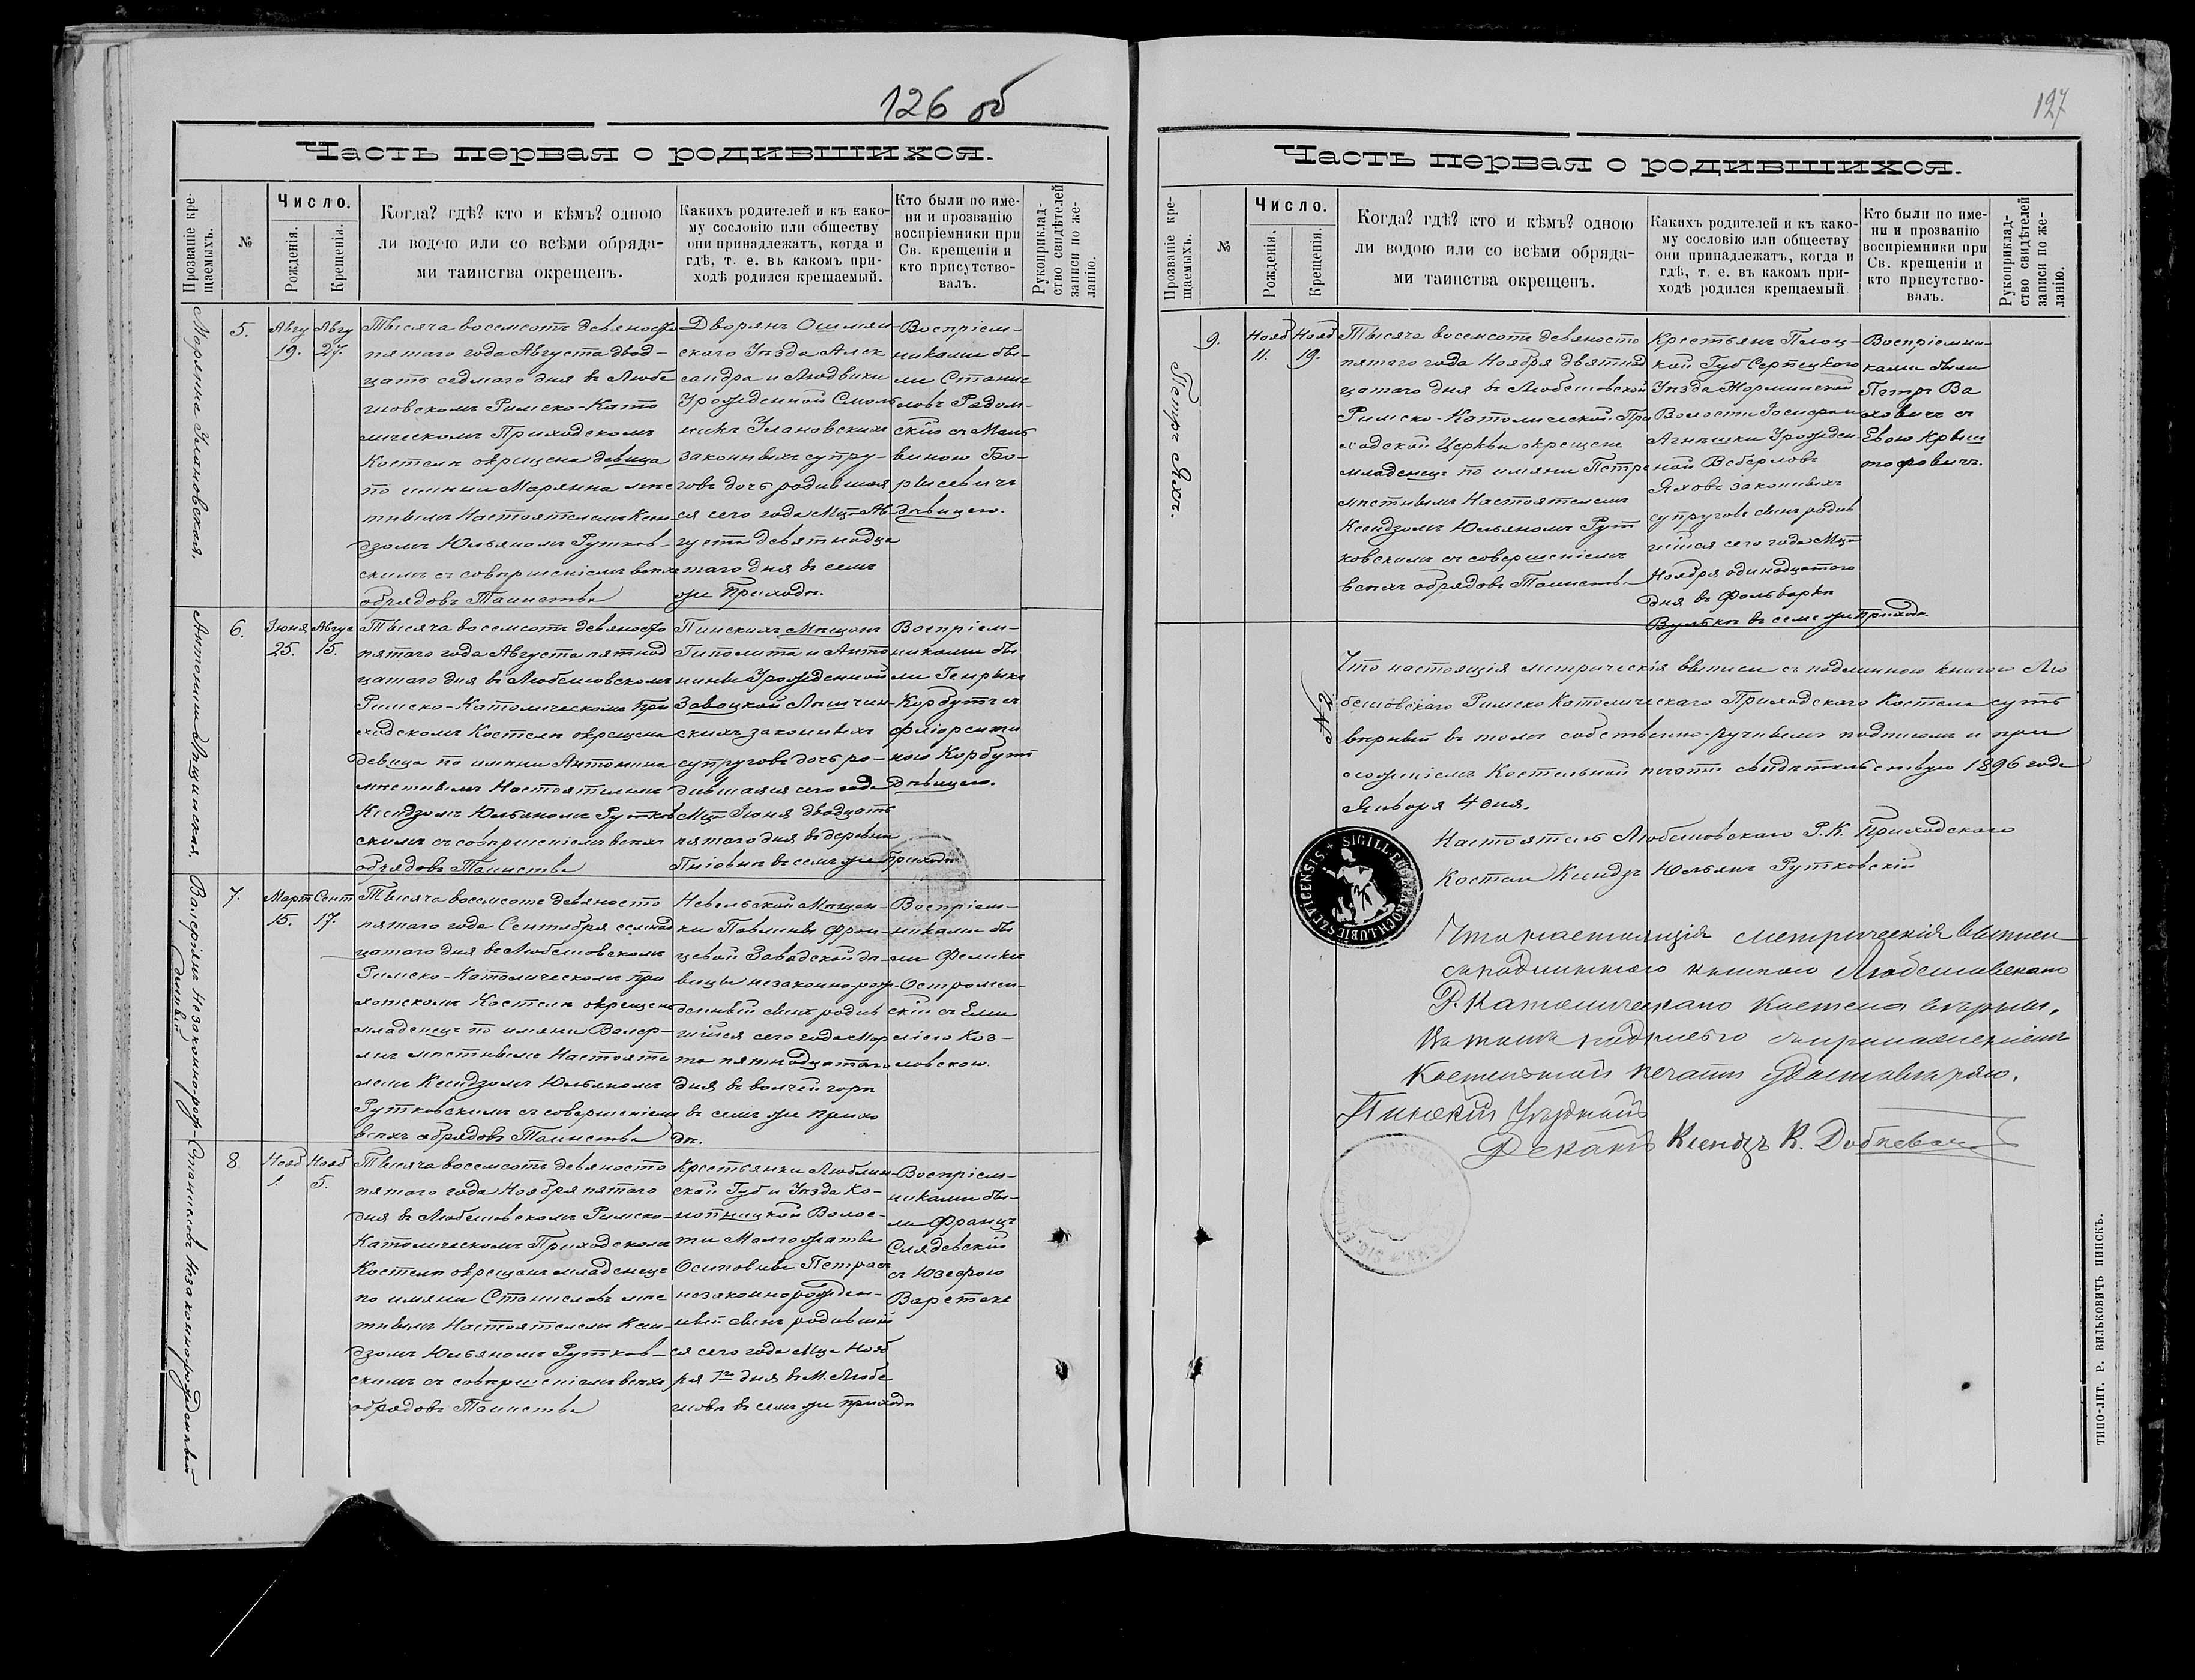 126 об
Часть первая о родившихся.
Прозваніе кре-
щаемыхъ.
№
Число.
Рожденія.
Крещенія.
Когда? гдѣ? кто и кѣмъ? одною
ли водою или со всѣми обряда-
ми таинства окрещенъ.
Какихъ родителей и къ како-
му сословію или обществу
они принадлежатъ, когда и
гдѣ, т. е. въ какомъ при-
ходѣ родился крещаемый.
Кто были по име-
ни и прозванію
воспріемники при
Св. крещеніи и
кто присутство-
валъ.
Рукоприклад-
ство свидѣтелей
записи по же-
ланію.
Марянна Улановская.
5.
Авгу
19.
Авгу
27.
Тысяча восемсотъ девяносто
пятаго года Августа двад-
цать седмаго дня въ Любе
шовскомъ Римско-Като
лическомъ Приходскомъ
Костелѣ окрещена девица
по имени Марянна мѣс
тнымъ Настоятелемъ Ксен-
дзомъ Юльяномъ Рутков-
скимъ съ совершеніемъ всѣхъ
обрядовъ Таинства
Дворянъ Ошмян-
скаго Уѣзда Алек
сандра и Людвики
Урожденной Смоль
никъ Улановскихъ
законныхъ супру-
говъ дочь родившая
ся сего года Мца Ав-
густа девятнадца
таго дня въ семъ
же Приходѣ.
Воспріем-
никами бы-
ли Станис
лавъ Радом-
скій съ Маль
виною Бо-
рисевичъ
дѣвицею.
Антонина Лящинская.
6.
Іюня
25.
Авгус
15.
Тысяча восемсотъ девяносто
пятаго года Августа пятнад
цатаго дня въ Любешовскомъ
Римско-Католическомъ При
ходскомъ Костелѣ окрещена
девица по имени Антонина
мѣстнымъ Настоятелемъ
Ксендзомъ Юльяномъ Рутков
скимъ съ совершеніемъ всѣхъ
обрядовъ Таинства
Пинскихъ Мѣщанъ
Гиполита и Анто
нины Урожденной
Завацкой Лящин-
скихъ законныхъ
супруговъ дочь ро-
дившаяся сего года
Мца Іюня двадцать
пятаго дня въ деревни
въ семъ же Приходѣ
Воспріем-
никами бы
ли Генрыкъ
Корбутъ съ
Фліоренти
ною Корбутъ
Дѣвицею.
Валеріянъ Незаконнорож-
денный
7.
Март
15.
Сент
17.
Тысяча восемсотъ девяносто
пятаго года Сентября семнад
цатаго дня въ Любешовскомъ
Римско-Католическомъ при
хотскомъ Костелѣ окрещенъ
младенецъ по имяни Валер-
янъ мѣстнымъ Настояте
лемъ Ксендзомъ Юльяномъ
Рутковскимъ съ совершеніемъ
всѣхъ обрядовъ Таинства
Невельской Мѣщан-
ки Павлины Фран-
цевой Завадской дѣ-
вицы незаконнорож-
денный сынъ родив
шійся сего года Мар
та пятнадцатаго
дня въ волчей горѣ
въ семъ же прихо
дѣ.
Воспріем-
никами бы
ли Феликсъ
Остромен-
скій съ Еми
ліею Коз-
ловскою.
Станиславъ Незаконнорожденный
8.
Нояб
1.
Нояб
5.
Тысяча восемсотъ девяносто
пятаго года Ноября пятаго
дня въ Любешовскомъ Римско-
Католическомъ Приходскомъ
Костелѣ окрещенъ младенецъ
по имяни Станиславъ мѣс
тнымъ Настоятелемъ Ксен-
дзомъ Юльяномъ Рутков-
скимъ съ совершеніемъ всѣхъ
обрядовъ Таинства
Крестьянки Люблин-
ской Губ и Уѣзда Ко-
нопницкой Волос-
ти Малгожаты
Осиповны Петрасъ
незаконнорожден-
ный сынъ родившій
ся сего года Мца Нояб
ря 1го дня въ М. Любе
шовѣ въ семъ же приходѣ
Воспріем-
никами бы-
ли Францъ
Слядевскій
съ Юзефою
Варстакъ
127
Часть первая о родившихся.
Прозваніе кре-
щаемыхъ.
№
Число.
Рожденія.
Крещенія.
Когда? гдѣ? кто и кѣмъ? одною
ли водою или со всѣми обряда-
ми таинства окрещенъ.
Какихъ родителей и къ како-
му сословію или обществу
они принадлежатъ, когда и
гдѣ, т. е. въ какомъ при-
ходѣ родился крещаемый
Кто были по име-
ни и прозванію
воспріемники при
Св. крещеніи и
кто присутство-
валъ.
Рукоприклад-
ство свидѣтелей
записи по же-
ланію.
Петръ Яхъ.
9.
Нояб
11.
Нояб
19.
Тысяча восемсотъ девяносто
пятаго года Ноября девятнад
цатаго дня въ Любешовской
Римско-Католической При
ходской Церкви окрещенъ
младенецъ по имяни Петръ
мѣстнымъ Настоятелемъ
Ксендзомъ Юльяномъ Рут
ковскимъ съ совершеніемъ
всѣхъ обрядовъ Таинства
Крестьянъ Плоц-
кой Губ Серпецкого
Уѣзда
Волости
Агнѣшки Урожден-
ной Веберловъ
Яховъ законныхъ
супруговъ сынъ родив
шійся сего года Мца
Ноября одинадцатого
дня въ Фольваркѣ
Вулькѣ въ семъ же Приходѣ
Воспріемни-
ками были
Петръ Ва
ховичъ съ
Евою Крыш
тофовичъ.
Что настоящія метрическія выписи съ подлинною книгою Лю
бешовскаго Римско Католическаго Приходскаго Костела суть
вѣрный въ томъ собственно-ручнымъ подписомъ и при
ложеніемъ Костельной печати свидѣтельствую 1896 года
Января 4 дня.
Настоятель Любешовскаго Р.К. Приходскаго
Костела Ксендзъ Юльянъ Рутковскій
Что настоящія метрическія выписи
съ подлинною книгою Любешовскаго
Р. Католическаго Костела вѣрны,
въ томъ подписью съ приложеніемъ
Костельной печати удостовѣряю.
Пинскій Уѣздный
Деканъ Ксендзъ К. Добкевичъ
ТИПО-ЛИТ. Р. ВИЛЬКОВИЧЪ ПИНСКЪ.